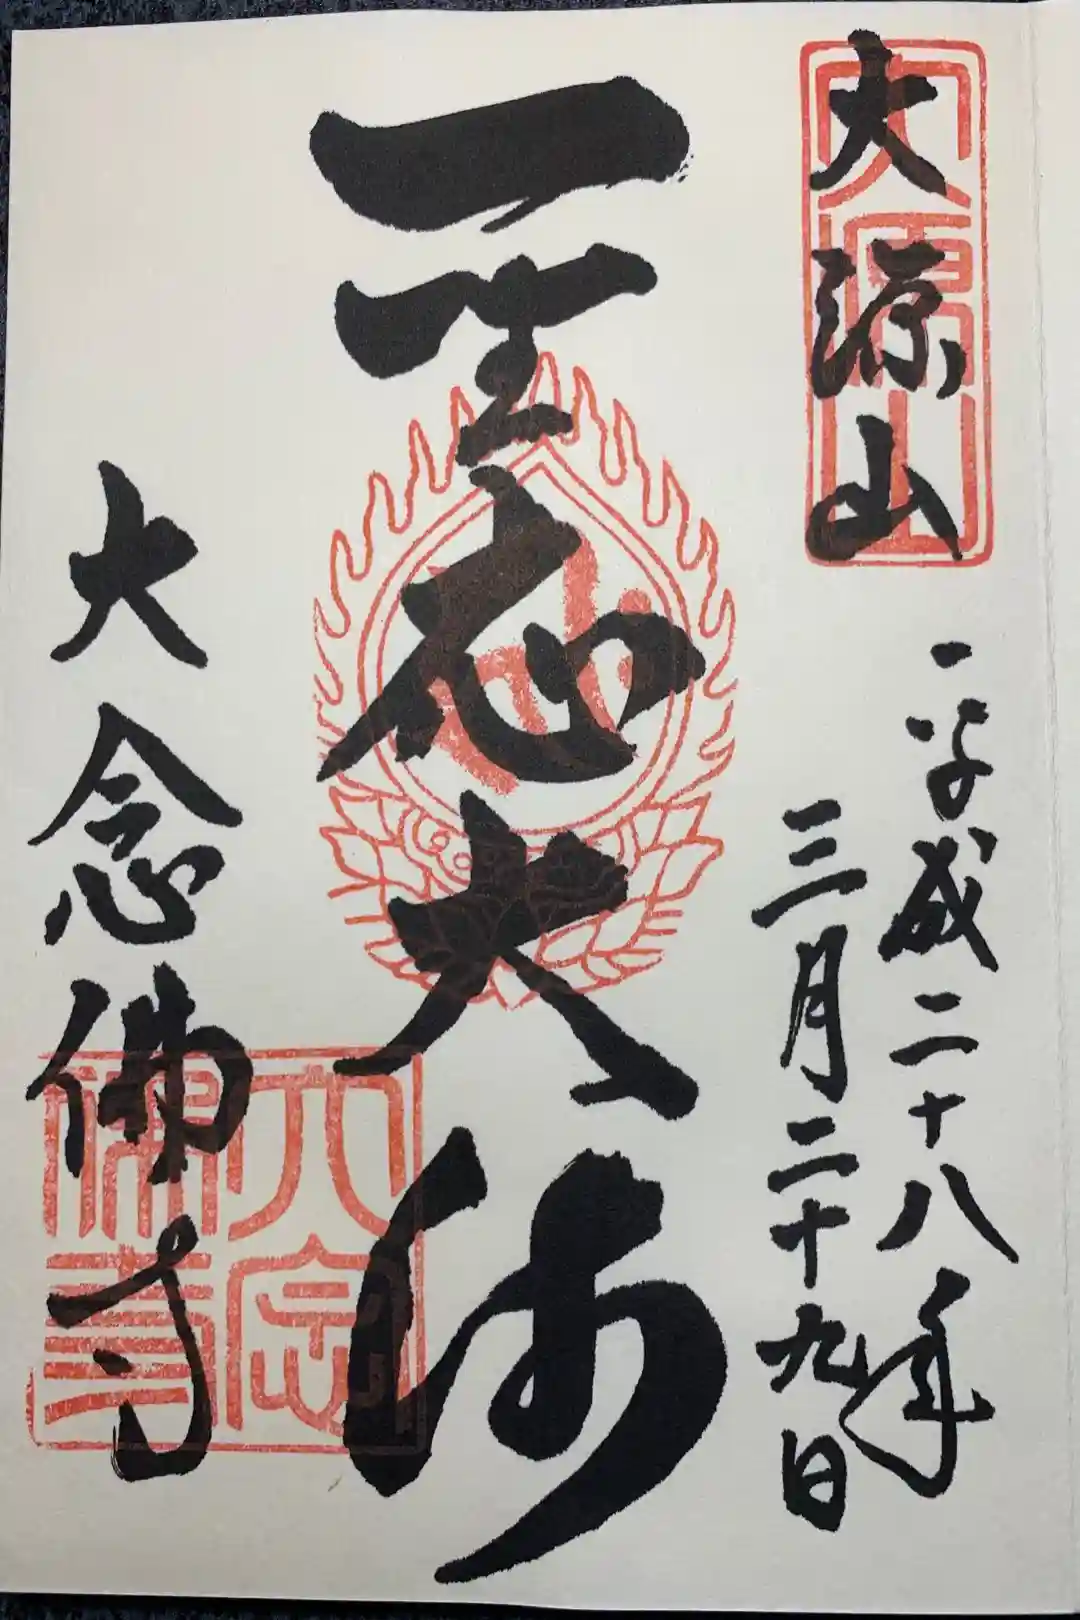 大源山
平成二十八年
三月二十九日
聖応大師
大念佛寺
大源山
大念
佛寺